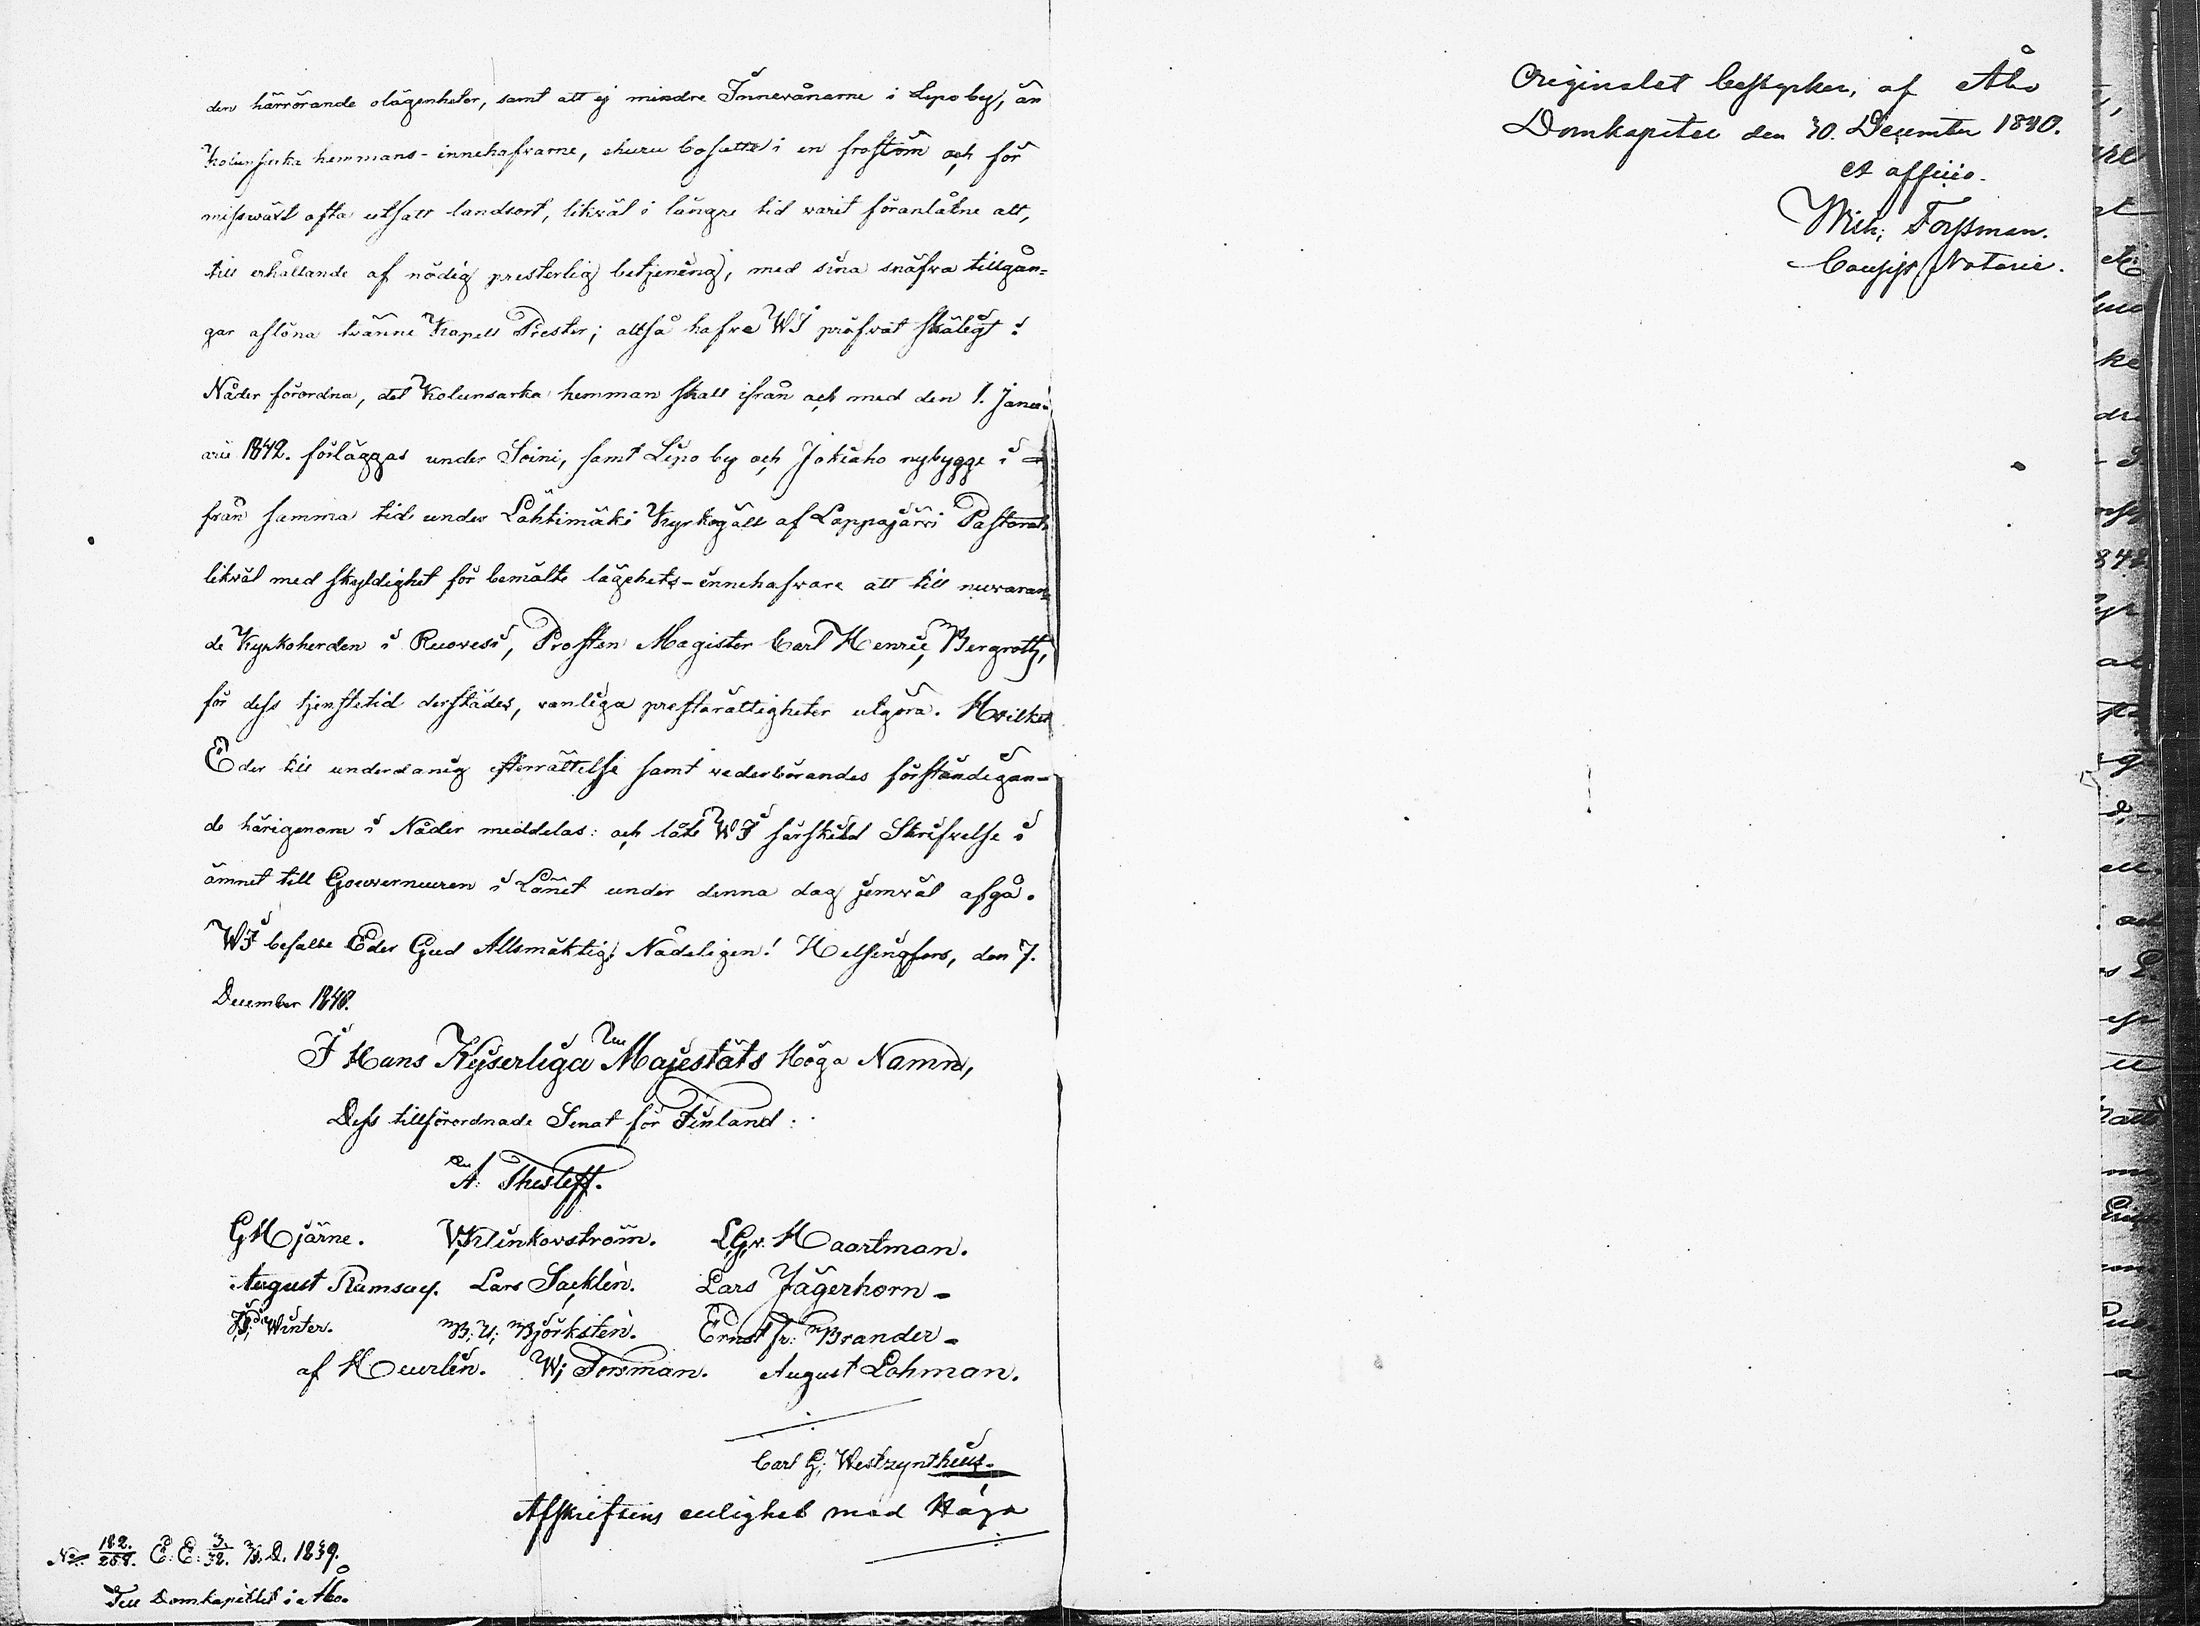 den härrörande olägenheter, samt att ej mindre Innevånarne i Lepo by, än
Kolunsarka hemmans-innehafvarne, ehuru bosatte i en frostöm och för
missväxt ofta utsatt landsort, likväl i längre tid varit föranlåtne att,
till erhållande af nödig presterlig betjening, med sina snäfva tillgån-
gar aflöna tvänne Kapell Prester; altså hafve WI pröfvat skäligt i
Nåder förordna, det Kolunsarka hemman skall ifrån och med den 1. Janu-
arii 1842. förläggas under Soini, samt Lepo by och Jokiaho nybygge i
från samma tid under Lähtimäki Kyrkogäll af Lappajärvi Pastorat
likväl med skyldighet för bemälte lägehets-innehafvare att till nuvaran-
de Kyrkoherden i Ruovesi, Prosten Magister Carl Henric Bergroth,
för dess tjenstetid derstädes, vanliga prestarättigheter utgöra. Hvilket
Eder till underdånig efterrättelse samt vederbörandes förständigan-
de härigenom i Nåder meddelas: och låte WI särskild Skrifvelse i
ämnet till Gouverneuren i Länet under denna dag jemväl afgå.
WI befalle Eder Gud Allsmäktig Nådeligen! Helsingfors, den 7.
December 1840.
I Hans Kejserliga Majestäts Höga Namn,
Dess tillförordnade Senat för Finland:
A: Thesleff.
G Hjärne. V, Klinkovström. L, G, v. Haartman.
August Ramsay. Lars Sacklén. Lars Jägerhorn-
Winter. B: U: Björkstén. Ernst Fr: Brander-
af Heurlin. W; Forsman. August Lohman.
Carl G; Westzynthius.
Afskriftens enlighet med Höga
No 182./258. E: E: 3./32. B. D. 1839.
Till Domkapitlet i Åbo.
Originalet bestyrker, af Åbo
Domkapitel den 30. December 1840.
Ex officio.
Wilh; Forssman.
Consist Notarie.